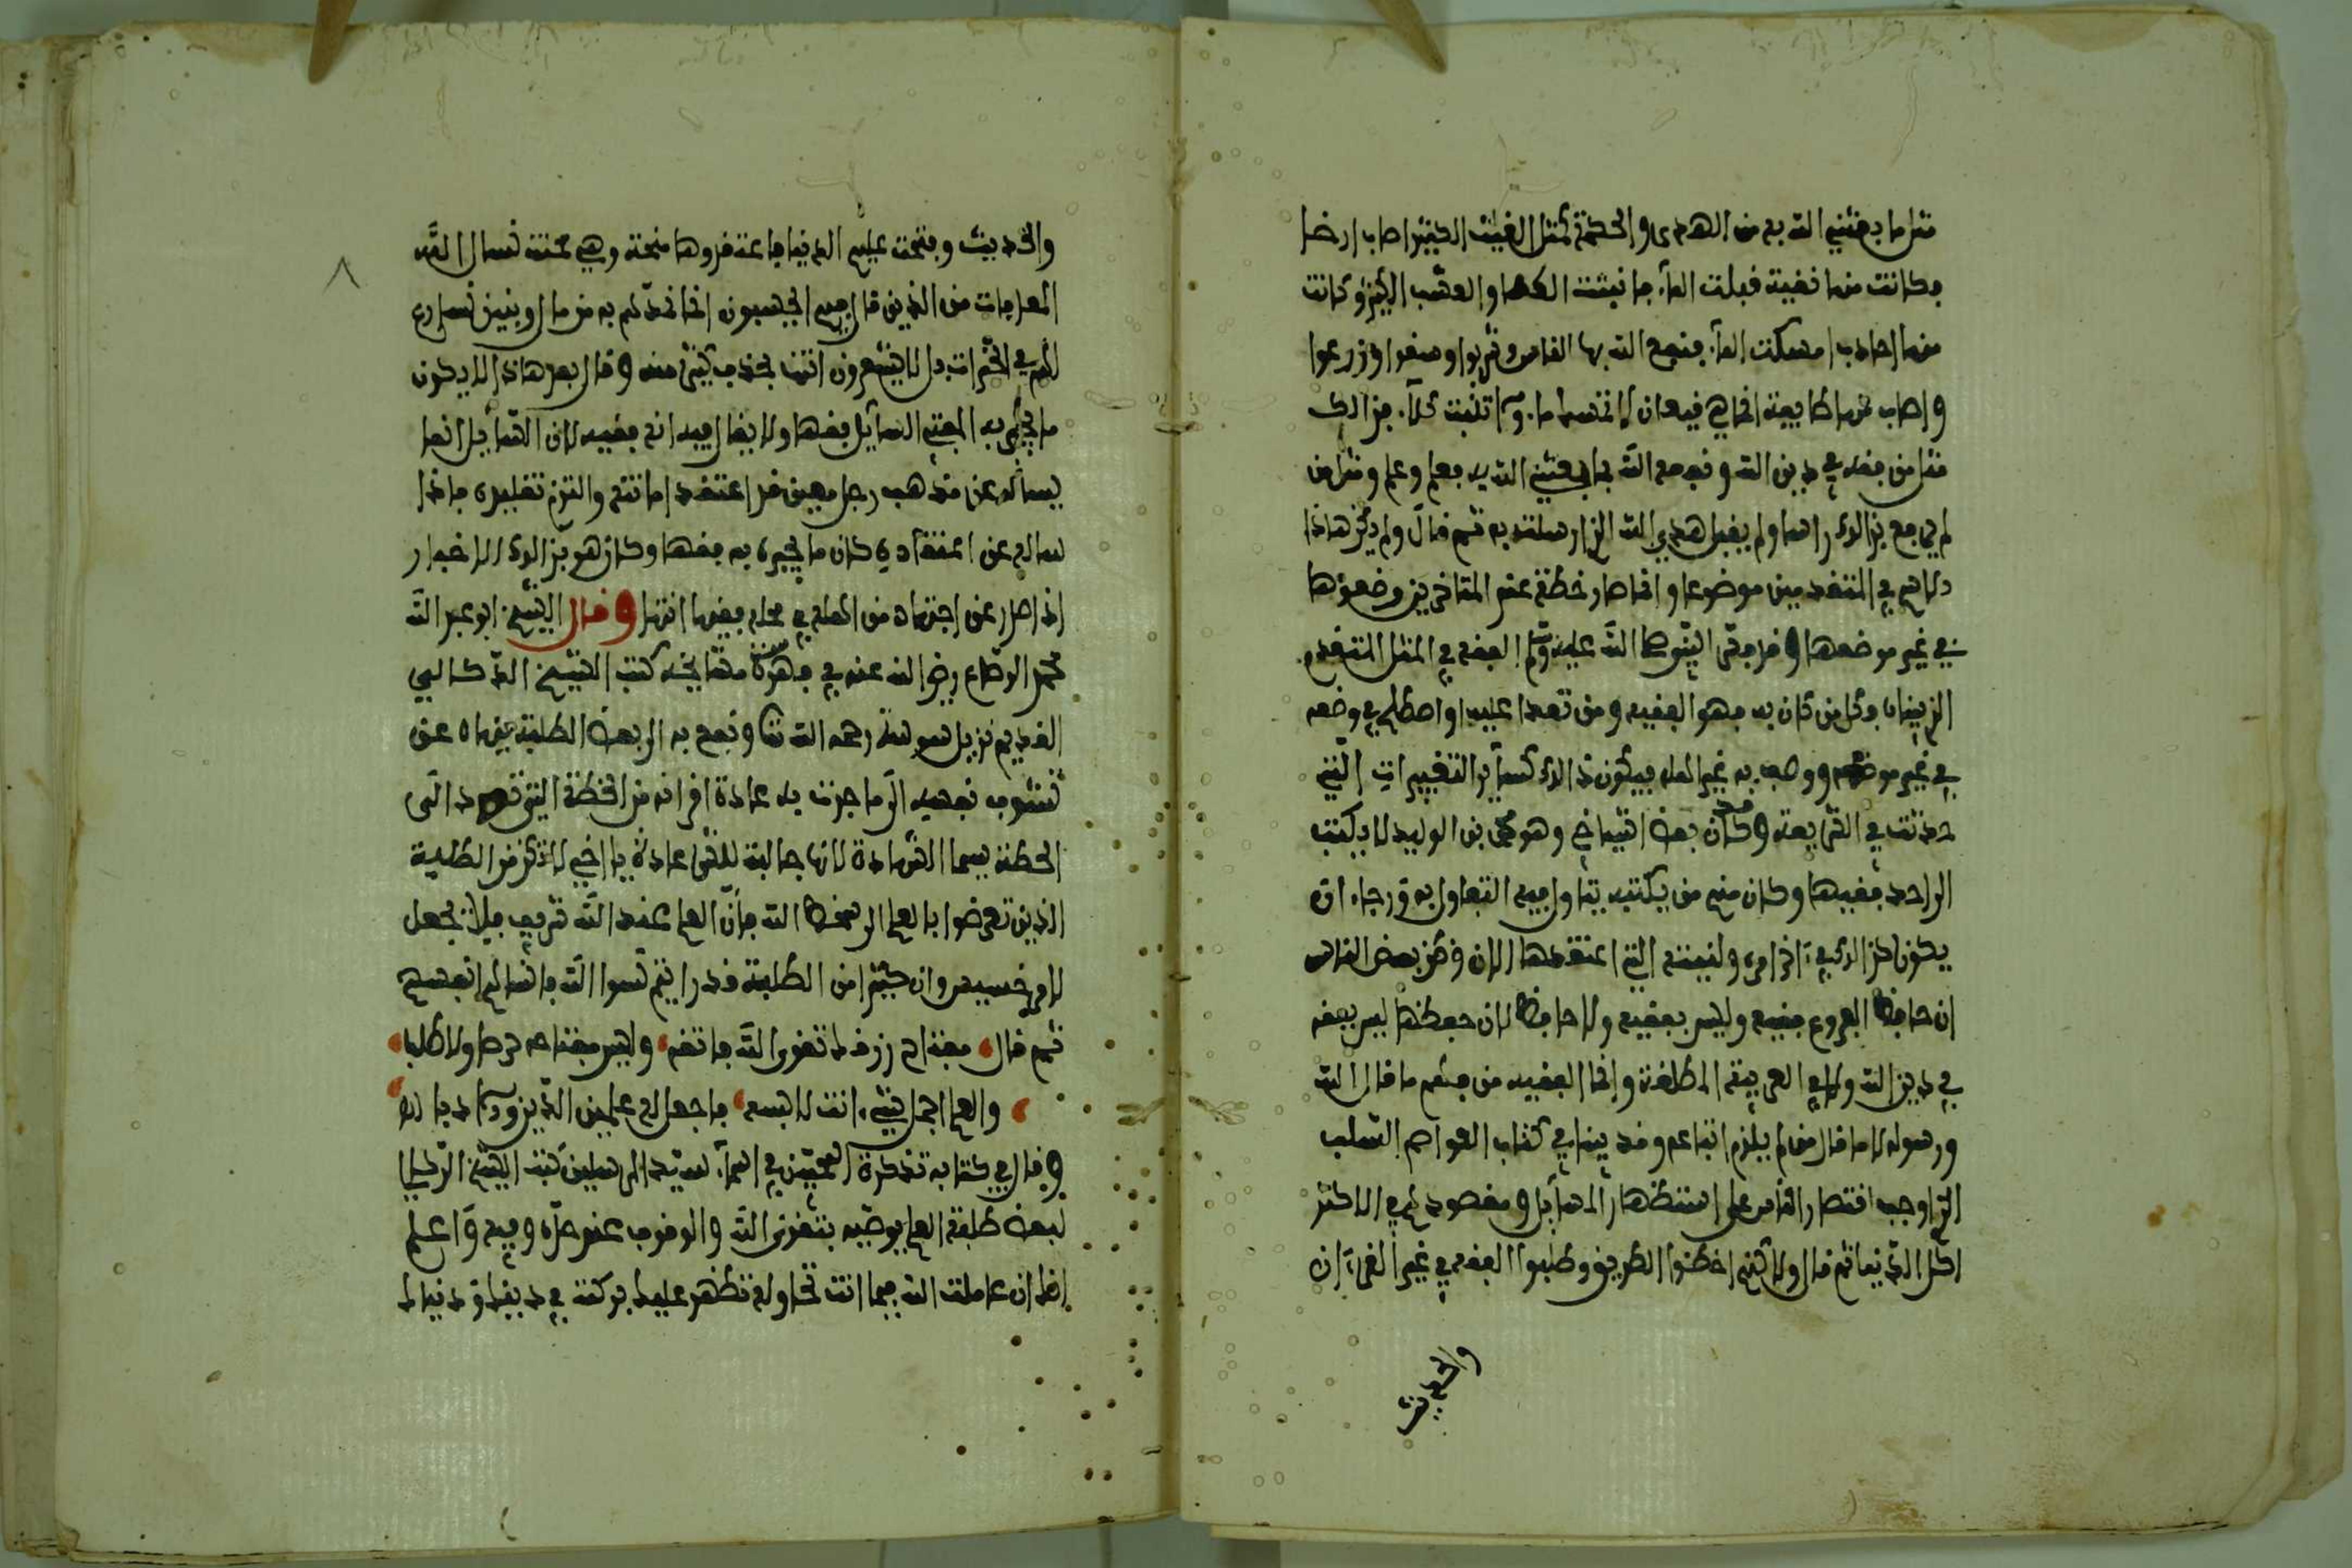 مثل ما بعثني الله به من الهدى والحكمة كمثل الغيث الكثير اصاب ارضا
فكانت منها نقية قبلت الماء فانبتت الكلأ والعشب الكثير وكانت
منها اجادب امسكت الماء فنفع الله بها الناس فشربوا وسقوا وزرعوا
واصاب منها طايفة انما هي قيعان لا تمسك ماء ولا تنبت كلأ فذالك
مثل من فقه في دين الله ونفعه الله بما بعثني الله به فعلم وعلم ومثل من
لم يرفع بذالك راسا ولم يقبل هدى الله الذي ارسلت به ثم قال ولم يكن هاذا
في المتقدمين موضوعا وانما صار خطة عند المتاخرين وضعوها
في غير موضعها وقد فسر النبي صلى الله عليه وسلم الفقه في المثل المتقدم
الذي فكل من كان به فهو الفقيه ومن تعدا عليه واصطلح في وضعه
في غير موضعه ووصف به غير اهله فيكون ذالك كساير التغييرات التي
حدثت في الشريعة وكان بعض اشياخي وهو محمد بن الوليد لا يكتب
لاحد فقيها وكان منهم من يكتبه يتاول فيه التفاول به ورجاء ان
يكون كذالك في اخر امره ولنيته التي اعتقدها الان وظن بعض الناس
ان حافظ الفروع فقيه وليس بفقيه ولا حافظ لان حفظها ليس بفقه
في دين الله ولا في العربية المطلقة وانما الفقيه من فهم ما قال الله
ورسوله لا ما قال من لم يلزم اتباعه وقد بينا في كتاب العواصم السبب
الذي اوجب اقتصار الناس على استظهار المسايل ومقصودهم في الاكثر
اكل الدنيا ثم قال ولاكنهم اخطئوا الطريق وطلبوا الفقه في غير القرءان
والحديث
والحديث وفتحت عليهم الدنيا فاعتقدوها منحة وهي محنة نسال الله
المعافات من الذين قال فيهم ايحسبون انما نمدهم به من مال وبنين نسارع
لهم في الخيرات بل لا يشعرون انتها بحذف كثير منه وقال بعد هاذا لا يكون
ما يجيب به المفتي السايل فقها ولا يقال فيه انه فقيه لان السايل انما
يساله عن مذهب رجل معين قد اعتقد امامته والتزم تقليده فاذا
ساله عن اعتقاده كان ما يخبره به فقها وكان هو بذالك الاخبار
اذا صدر عن اجتهاد من اهله في محله فقيها انتها وقال الشيخ ابو عبد الله
محمد الرصاع رضي الله عنه في فهرسة مشايخه كتب الشيخ الدكالي
القديم نزيل سوسة رحمه الله تعالى ونفع به الى بعض الطلبة ينهاه عن
تشوف نفسه الى ما جرت به عادة اقرانه من الخطة التي تودي الى
الحطة سيما الشهادة لانها جالبة للشر عادة يا اخي لا تكن من الطلبة
الذين تعرضوا بالعلم الى سخط الله فان العلم عند الله شريف فلا تجعل
لامر خسيس وان كثيرا من الطلبة قد رايتهم نسوا الله فانساهم انفسهم
ثم قال مفتاح رزقك تقوى الله فاتقه وليس مفتاحه حرصا ولا طلبا
والعلم اجمل شيء انت لابسه فاجعل له علمين الدين والادبا
وقال في كتابه تذكرة المحبين في اسماء سيد المرسلين كتب الشيخ الدكالي
لبعض طلبة العلم يوصيه بتقوى الله والوقوف عند حده وفيه واعلم
انك ان عاملت الله فيما انت تحاوله تظهر عليك بركته في دينك ودنياك
٨